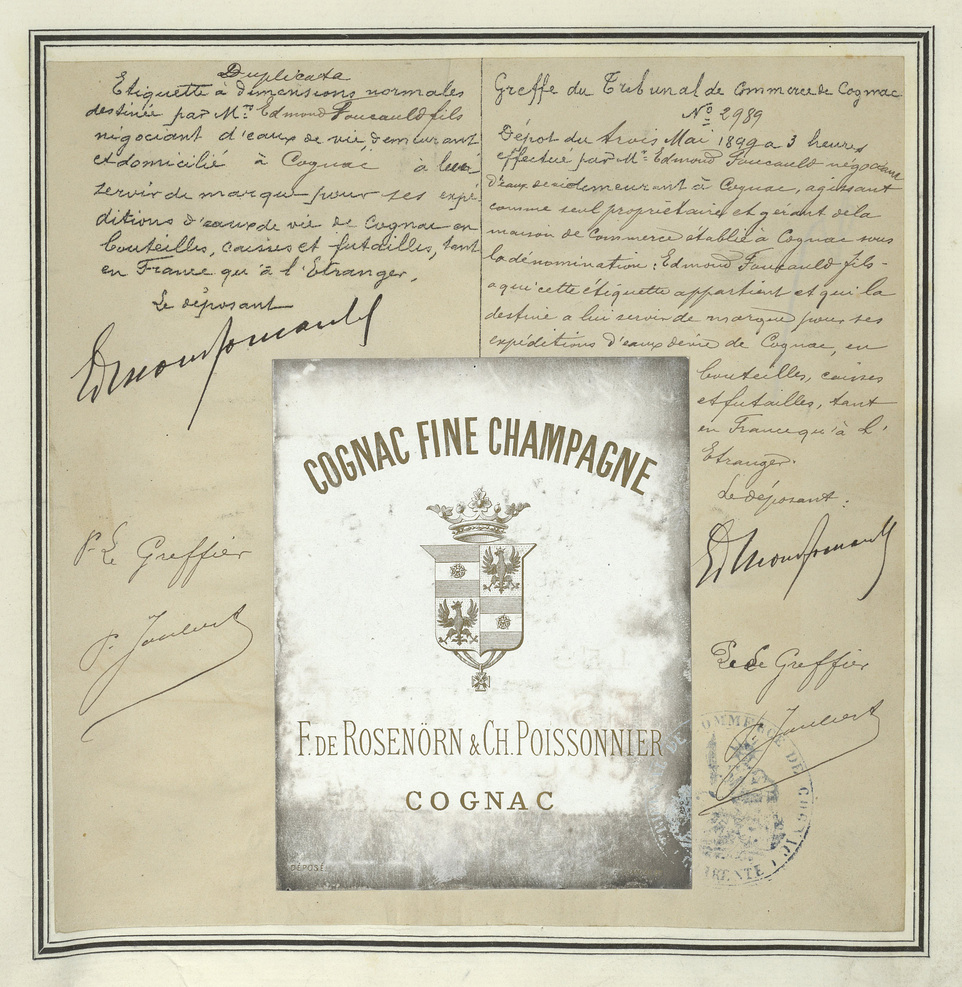 Duplicata
Etiquette à dimensions normales
destinée par Mr. Edmond Foucauld fils
négociant d'eaux de vie, demeurant
et domicilié à Cognac à lui
servir de marque pour ses expé-
ditions d'eaux de vie de Cognac en
bouteilles, caisses et futailles, tant
en France qu'à l'Etranger.
Le déposant
Edmond Foucauld
Pr Le Greffier
P. Joubert
Greffe du Tribunal de Commerce de Cognac
No 2989
Dépot du trois Mai 1899 à 3 heures
effectué par Mr. Edmond Foucauld négociant
d'eaux de vie demeurant à Cognac, agissant
comme seul propriétaire et gérant de la
maison de Commerce établie à Cognac sous
la dénomination : Edmond Foucauld fils -
a qui cette étiquette appartient et qui la
destine a lui servir de marque pour ses
expéditions d'eaux de vie de Cognac, en
bouteilles, caisses
et futailles, tant
en France qu'à l'
Etranger.
Le déposant.
Edmond Foucauld
Le Greffier
P. Joubert
COGNAC FINE CHAMPAGNE
F. DE ROSENÖRN & CH. POISSONNIER
COGNAC
DÉPOSÉ
DE COMMERCE DE COGNAC